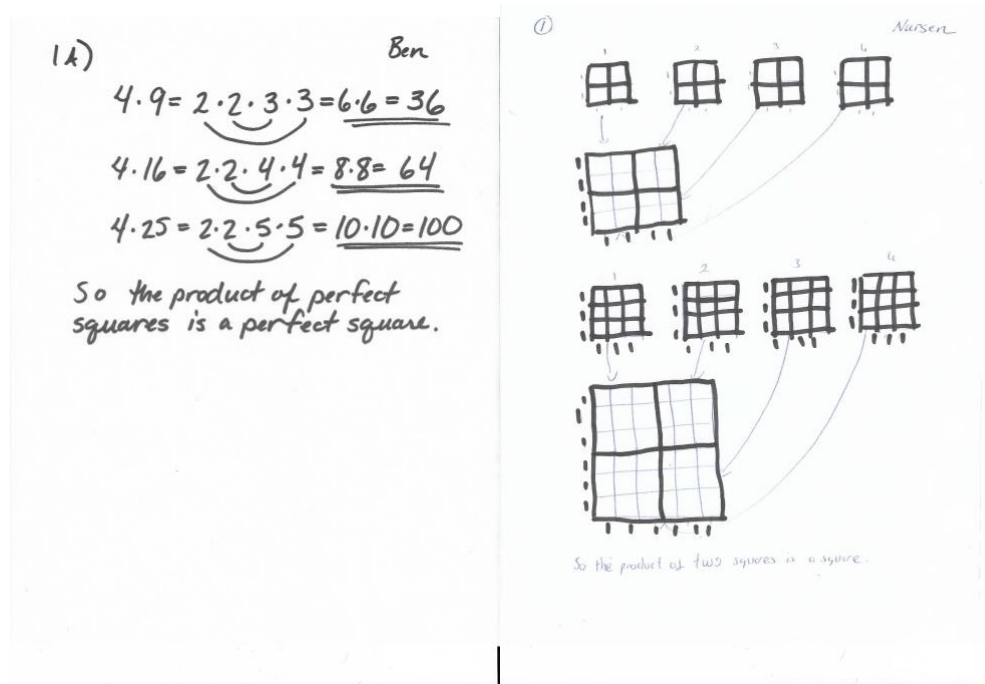 1A) Ben
4·9= 2·2·3·3=6·6=36
4·16=2·2·4·4=8·8=64
4·25=2·2·5·5=10·10=100
So the product of perfect
squares is a perfect square.
① Nursen
1 2 3 4
1 2 3 4
So the product of two squares is a square.